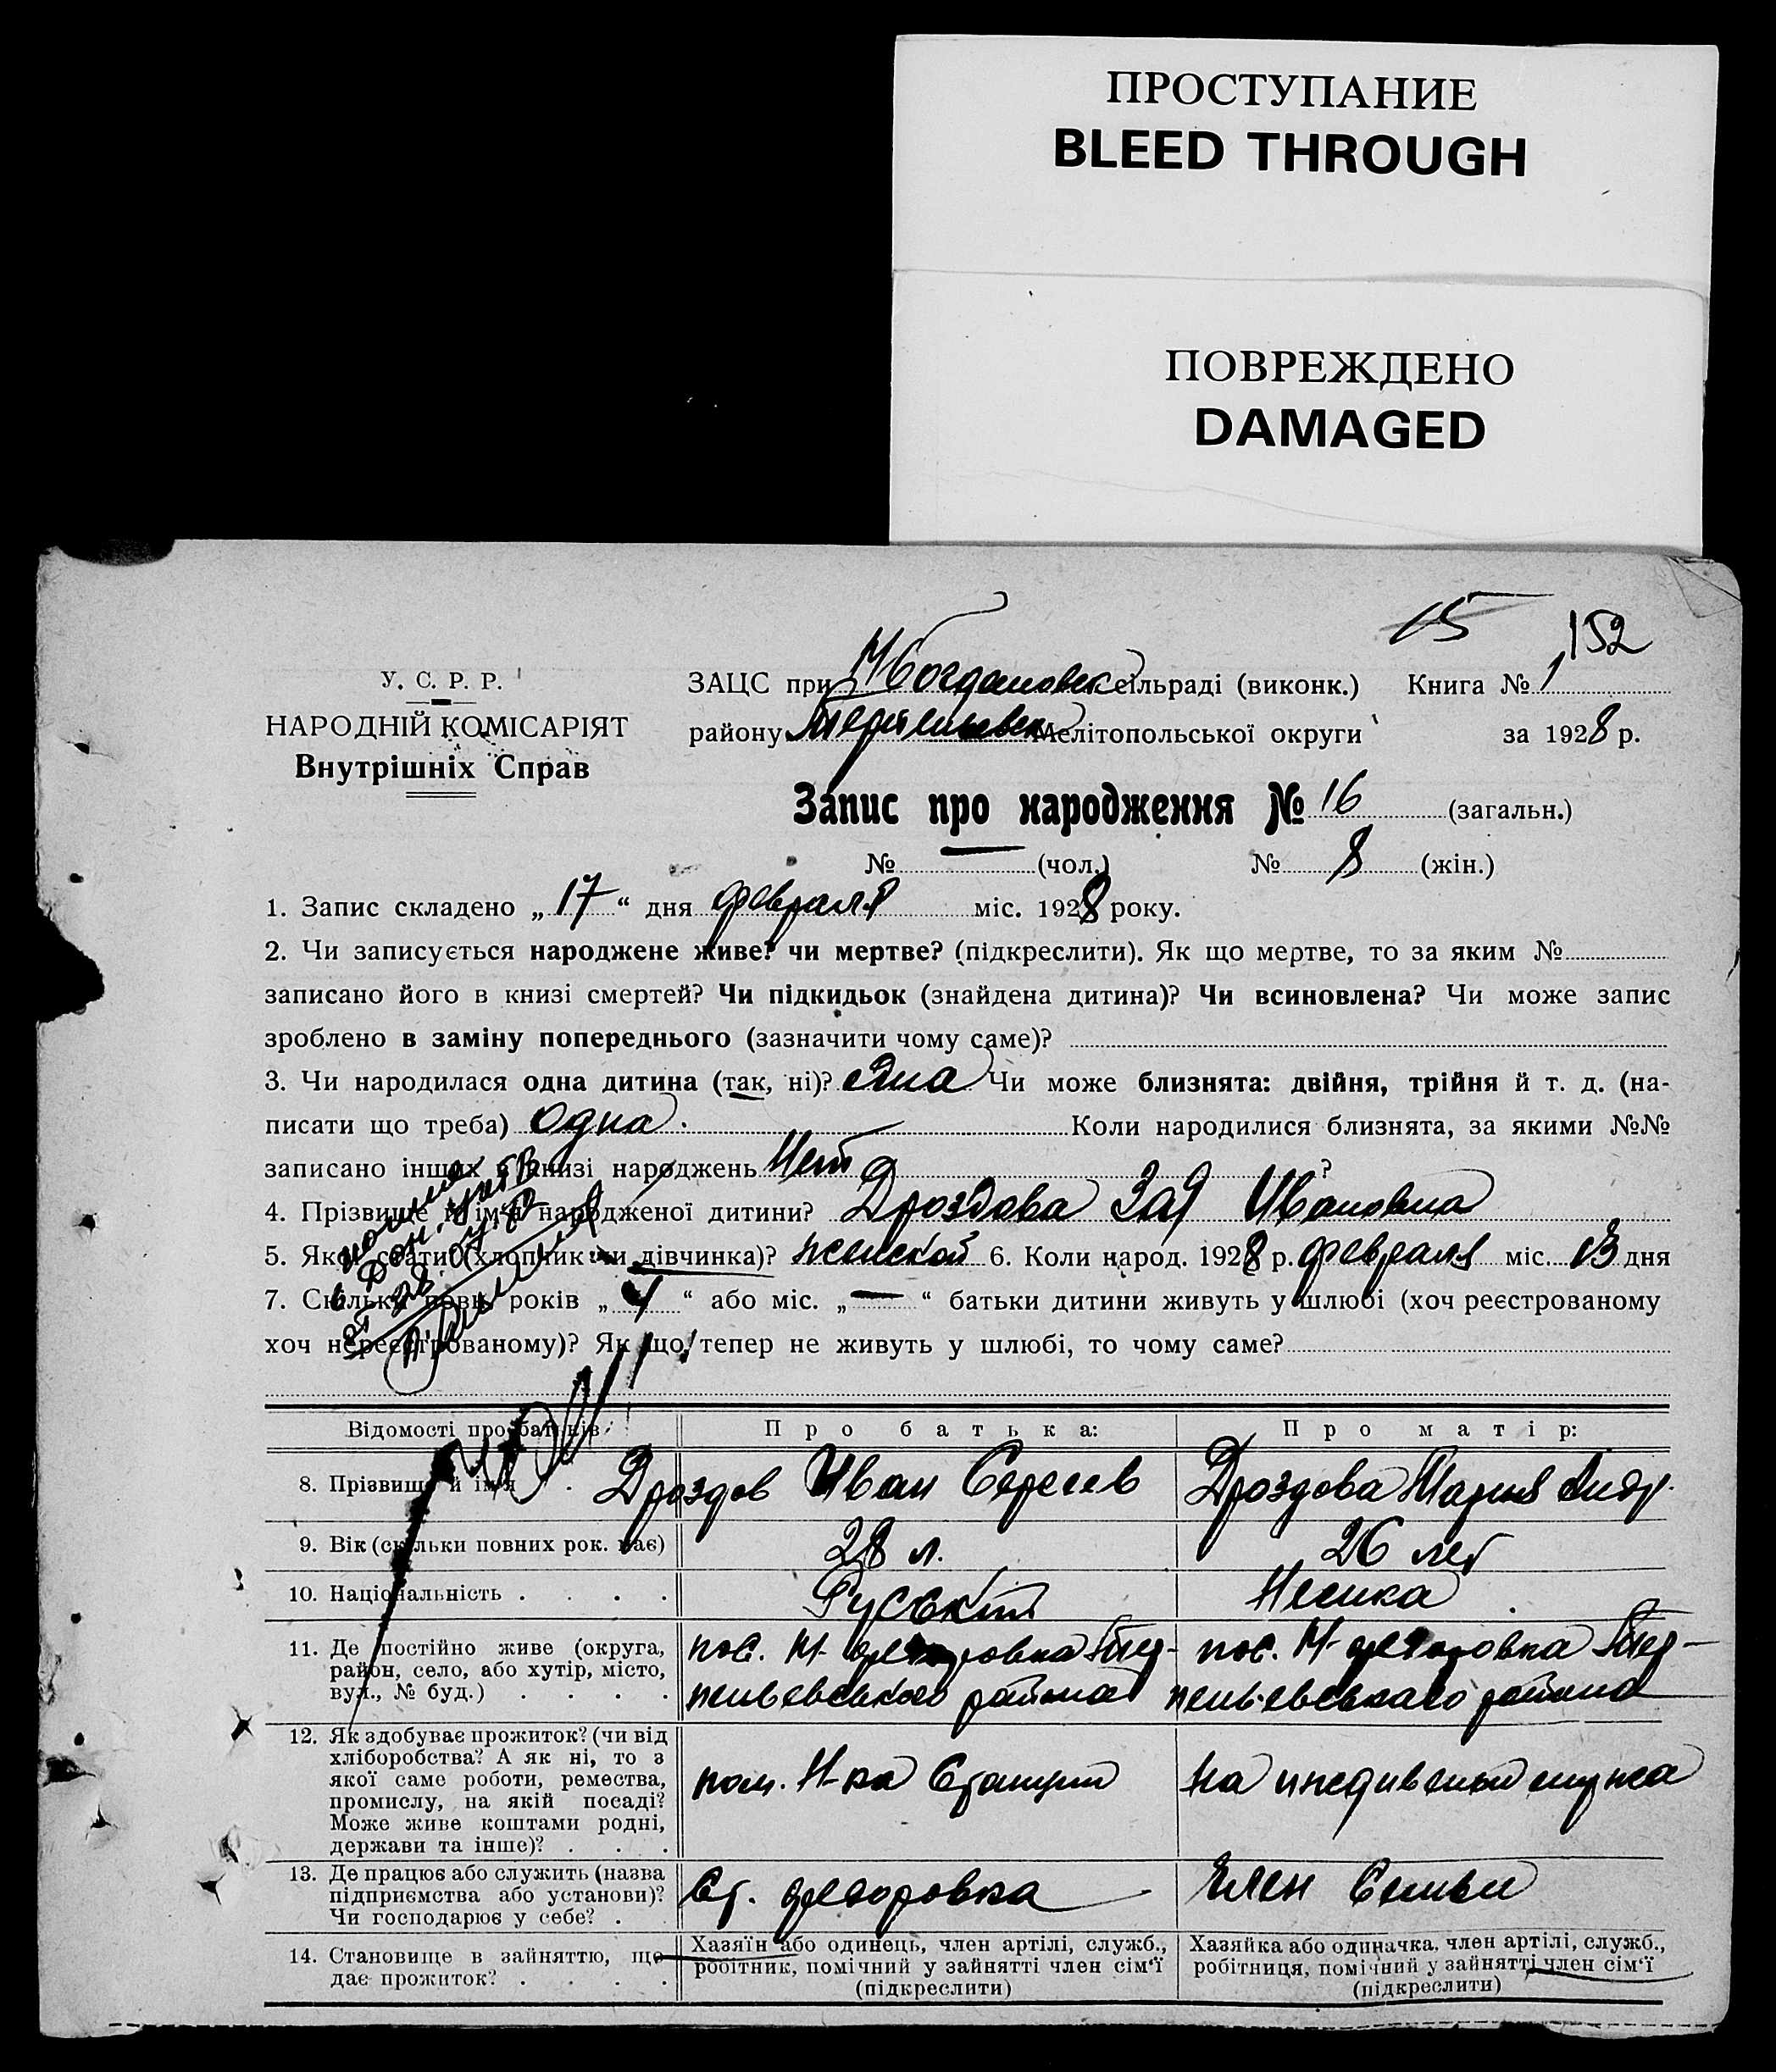 ПРОСТУПАНИЕ
BLEED THROUGH
ПОВРЕЖДЕНО
DAMAGED
15
152
У. С. Р. Р.
НАРОДНІЙ КОМІСАРІЯТ
Внутрішніх Справ
ЗАЦС при М Богдановск сільраді (виконк.) Книга № 1
району Терпеньевск Мелітопольської округи за 1928 р.
Запис про народження № 16 (загальн.)
№ — (чол.) № 8 (жін.)
1. Запис складено „ 17 “ дня февраля міс. 1928 року.
2. Чи записується народжене живе? чи мертве? (підкреслити). Як що мертве, то за яким №
записано його в книзі смертей? Чи підкидьок (знайдена дитина)? Чи всиновлена? Чи може запис
зроблено в заміну попереднього (зазначити чому саме)?
3. Чи народилася одна дитина (так, ні)? Чи може близнята: двійня, трійня й т. д. (на-
писати що треба) одна. Коли народилися близнята, за якими №№
записано інших в книзі народжень Нет ?
4. Прізвище й ім'я народженої дитини? Дроздова Зая Ивановна
5. Якої статі (хлопчик чи дівчинка)? женской 6. Коли народ. 1928 р. февраля міс. 13 дня
7. Скільки повн. років „ 4 “ або міс. „ — “ батьки дитини живуть у шлюбі (хоч реєстрованому
хоч нереєстрованому)? Як що тепер не живуть у шлюбі, то чому саме?
Відомості про батьків: Про батька: Про матір:
8. Прізвище й ім'я . Дроздов Иван Сергеев Дроздова Мария Андр.
9. Вік (скільки повних рок. має) 28 л. 26 лет
10. Національність . . . . Руський Немка
11. Де постійно живе (округа,
район, село, або хутір, місто,
вул., № буд.) . . . .
пос. М-Федоровка Тер-
пеньевського района
пос. М-Федоровка Тер-
пеньевскаго района
12. Як здобуває прожиток? (чи від
хліборобства? А як ні, то з
якої саме роботи, ремества,
промислу, на якій посаді?
Може живе коштами родні,
держави та інше)? . . .
пом. Н-ка Станции
На иждивеньи мужа
13. Де працює або служить (назва
підприємства або установи)?
Чи господарює у себе? .
Ст. Федоровка
Член Семьи
14. Становище в зайняттю, що
дає прожиток? . . . .
Хазяїн або одинець, член артілі, служб.,
робітник, помічний у зайнятті член сім'ї
(підкреслити)
Хазяйка або одиначка, член артілі, служб.,
робітниця, помічний у зайнятті член сім'ї
(підкреслити)